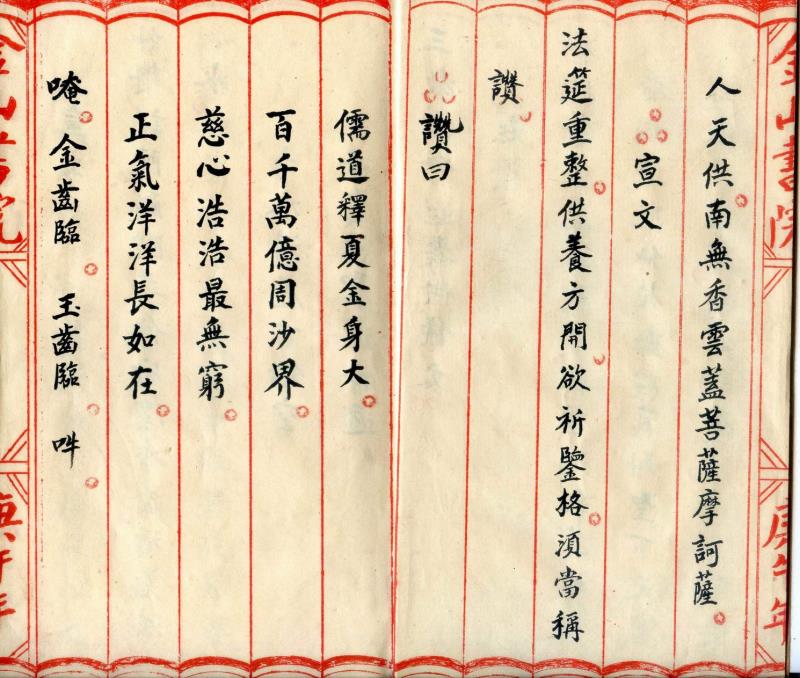 金山書院
人天供南無香雲蓋菩薩摩訶薩
宣文
法筵重整供養方開欲祈鑒格須當稱
讚
讚曰
庚午年
儒道釋夏金身大
百千萬億周沙界
慈心浩浩最無窮
正氣洋洋長如在
唵 金齒臨 玉齒臨 吽
金山書院
庚午年